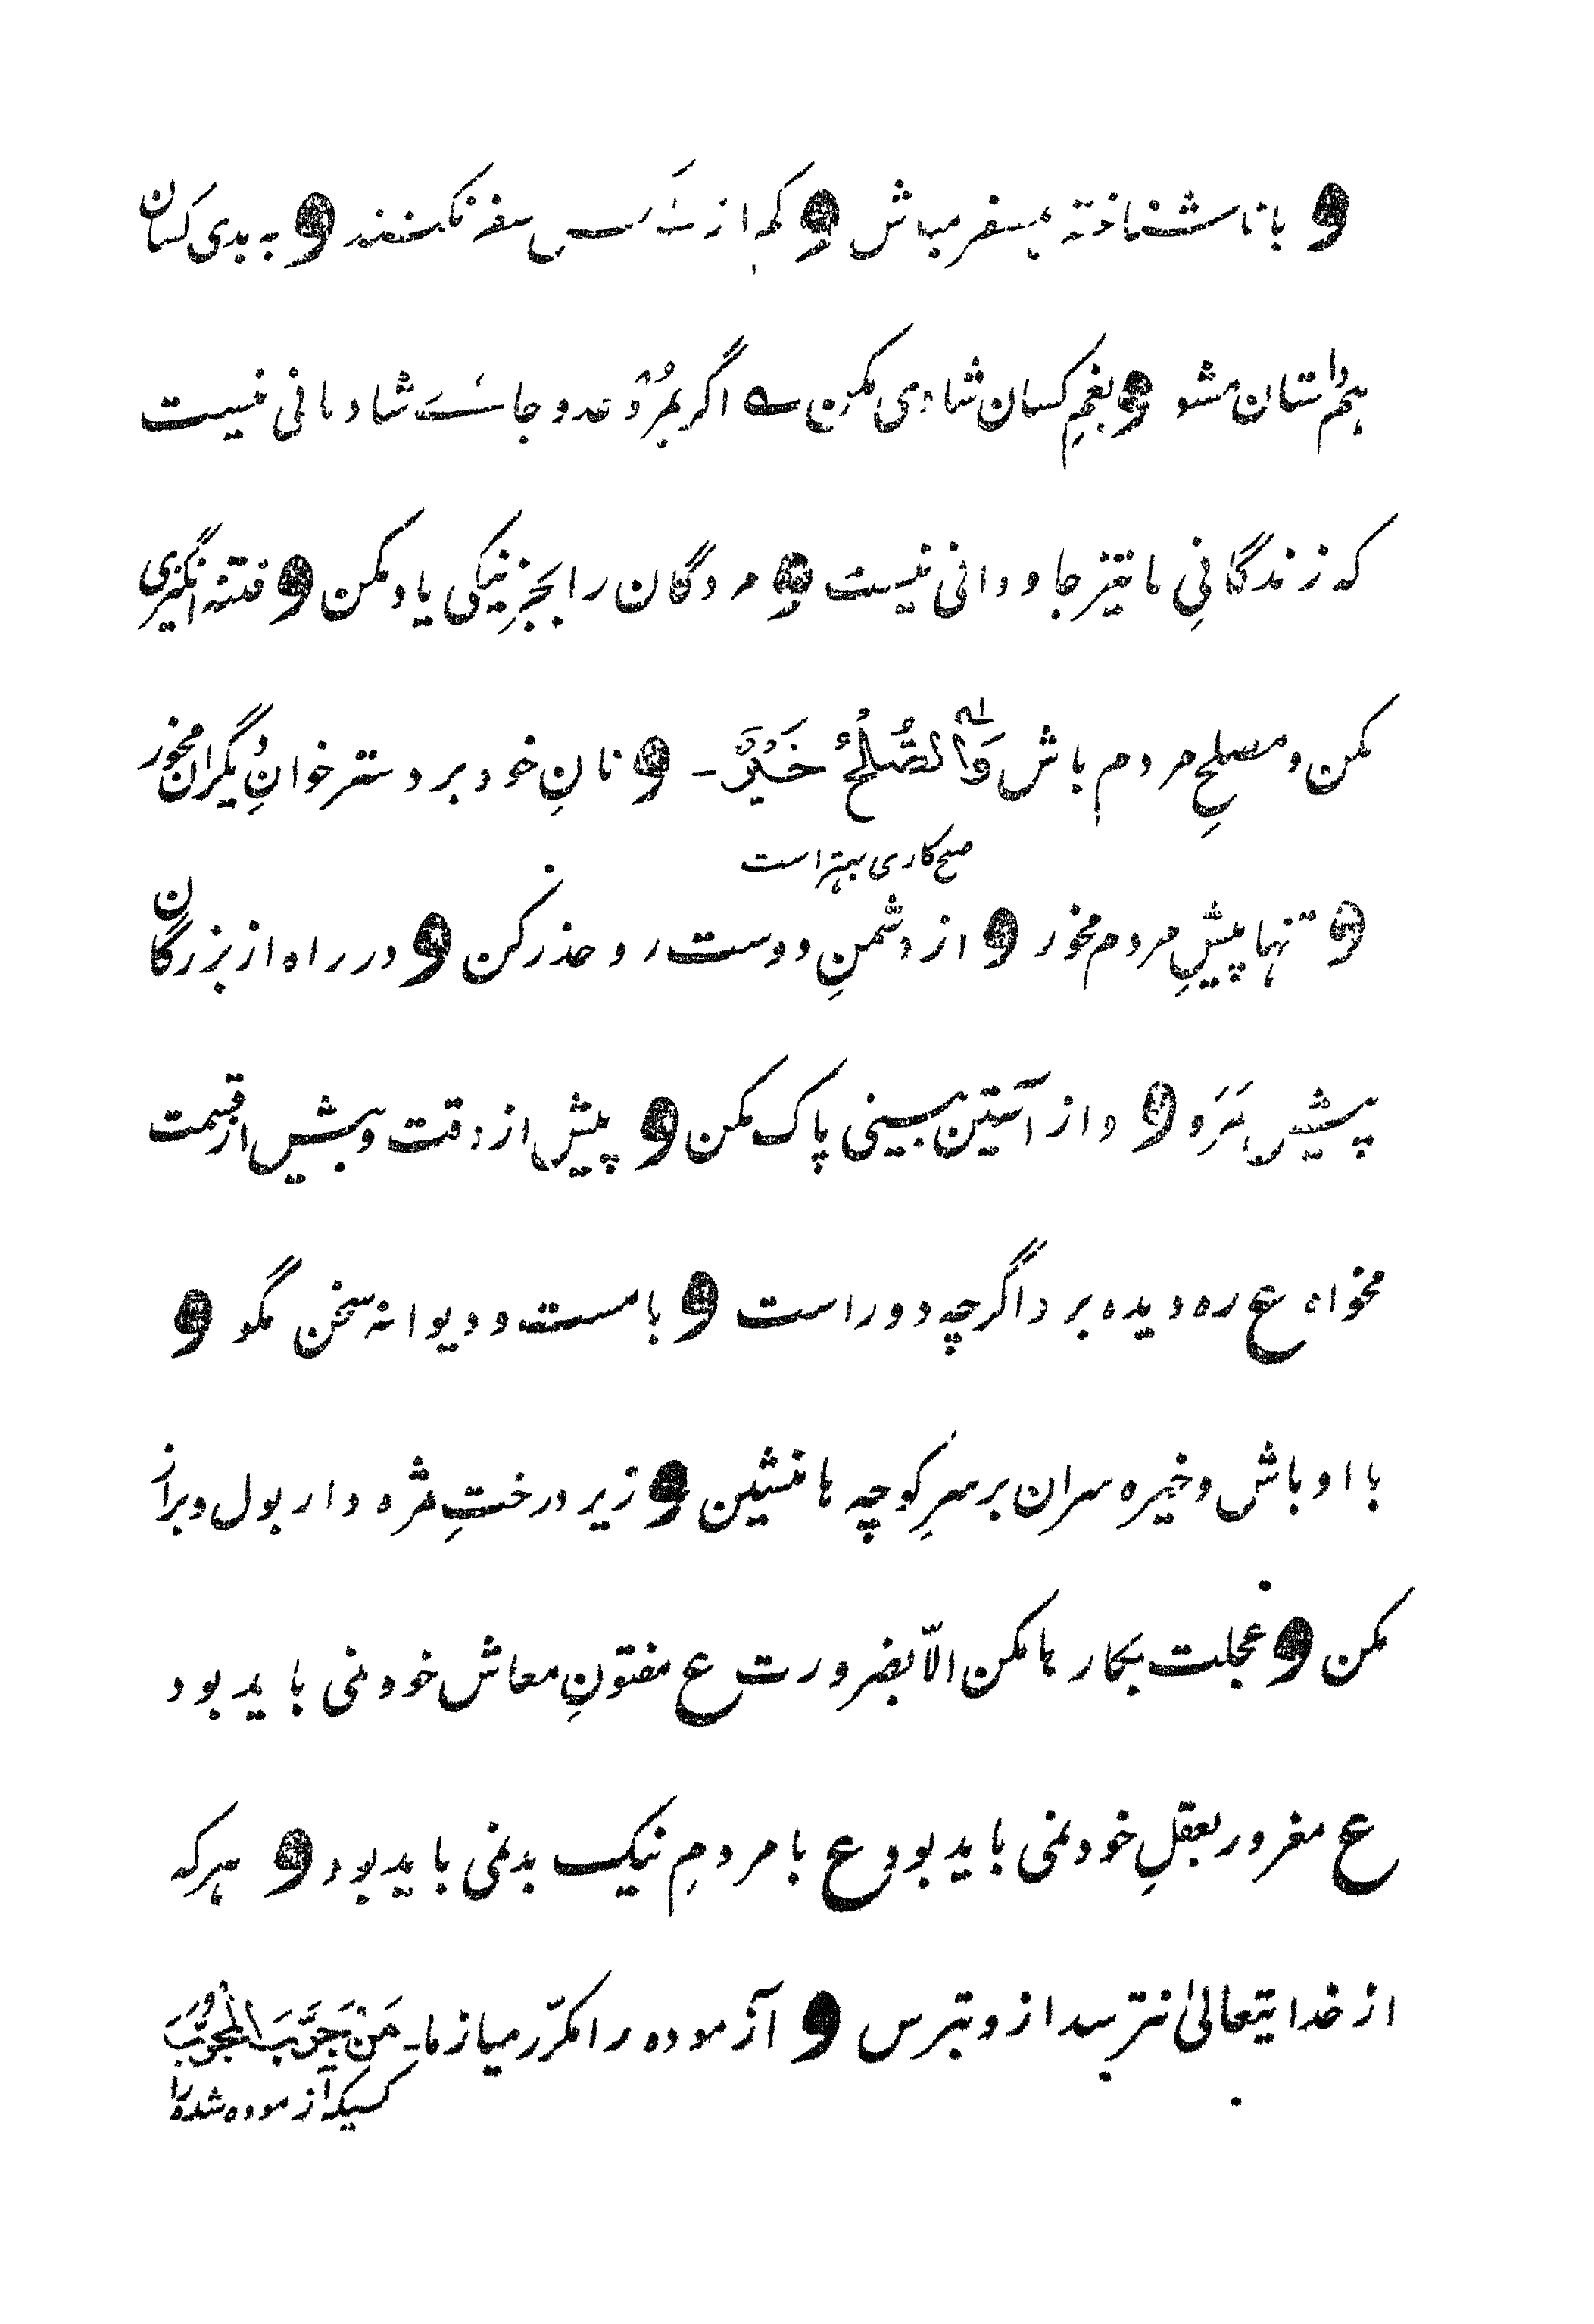 و با ناشناخته همسفر مباش و کم از سه کس سفر نکنند و به بدی کسان
همداستان مشو و بغمِ کسان شادی مکن ؎ اگر بمُرد عدو جائے شادمانی نیست
که زندگانیِ ما نیز جاودانی نیست و مردگان را بجز نیکی یاد مکن و فتنه انگیزی
مکن و مصلحِ مردم باش وَالصُّلْحُ خَیْرٌ ـ و نانِ خود بر دسترخوانِ دیگران مخور
صلح کاری بهتر است
و تنها پیشِ مردم مخور و از دشمنِ دوست رو حذر کن و در راه از بزرگان
پیشیش مَرَو و از آستین بینی پاک مکن و پیش از وقت و بیش از قسمت
مخواه ع ره دیده برو اگرچه دور است و با مست و دیوانه سخن مگو و
با اوباش و خیره سران بر سرِ کوچه ها منشین و زیر درختِ ثمره دار بول و براز
مکن و عجلت بکار ها مکن الّا بضرورت ع مفتونِ معاش خود نمی باید بود
ع مغرور بعقلِ خود نمی باید بود ع با مردمِ نیک بد نمی باید بود و هر که
از خدایتعالیٰ نترسد ازو بترس و آزموده را مکرّر میازما ـ مَنْ جَرَّبَ الْمُجَرَّبَ
کسیکه آزموده شده را